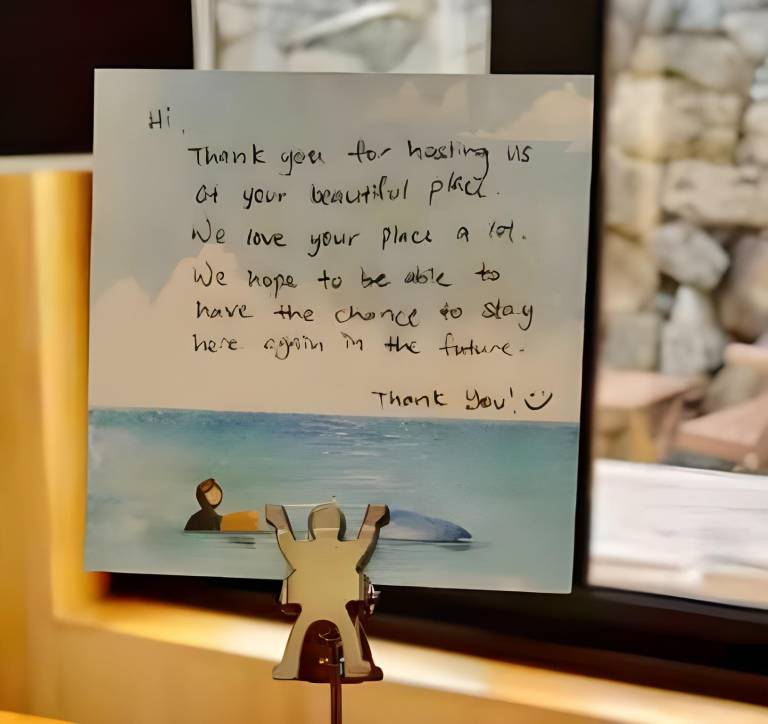 Hi,
Thank you for hosting us
at your beautiful place.
We love your place a lot.
We hope to be able to
have the chance to stay
here again in the future.
Thank You! :)